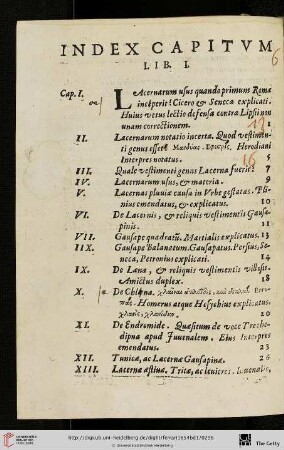 INDEX CAPITVM
6
LIB. I.
Cap. I. LAcernarum usus quando primum Romæ
inceperit? Cicero & Seneca explicati.
Huius vetus lectio defensa contra Lipsii non
unam correctionem. 1
II. Lacernarum notatio incerta. Quod vestimenti
genus esset Μανδύας. Εφεςρίς. Herodiani
Interpres notatus. 5
III. Quale vestimenti genus Lacerna fuerit? 7
IV. Lacernarum usus, & materia. 9
V. Lacernas pluviæ causa in Vrbe gestatas. Plinius
emendatus, & explicatus. 10
VI. De Lacernis, & reliquis vestimentis Gausapinis.
11
VII. Gausape quadratū. Martialis explicatus. 13
IIX. Gausape Balanatum. Gausapatus. Persius, Seneca,
Petronius explicati. 14
IX. De Lana, & reliquis vestimentis villosis.
Amictus duplex. 18
X. De Chlæna.
Homerus atque Hesychius explicatus.
20
XI. De Endromide. Quæsitum de voce Trechedipna
apud Juvenalem. Eius Interpres
emendatus. 23
XII. Tunica, ac Lacerna Gausapina. 26
XIII. Lacerna æstiva. Trita, ac leviores. Iuvenalis,
http://digi.ub.uni-heidelberg.de/diglit/ferrari1654bd1/0296
© Universitätsbibliothek Heidelberg
UNIVERSITÄTS-
BIBLIOTHEK
HEIDELBERG
The Getty